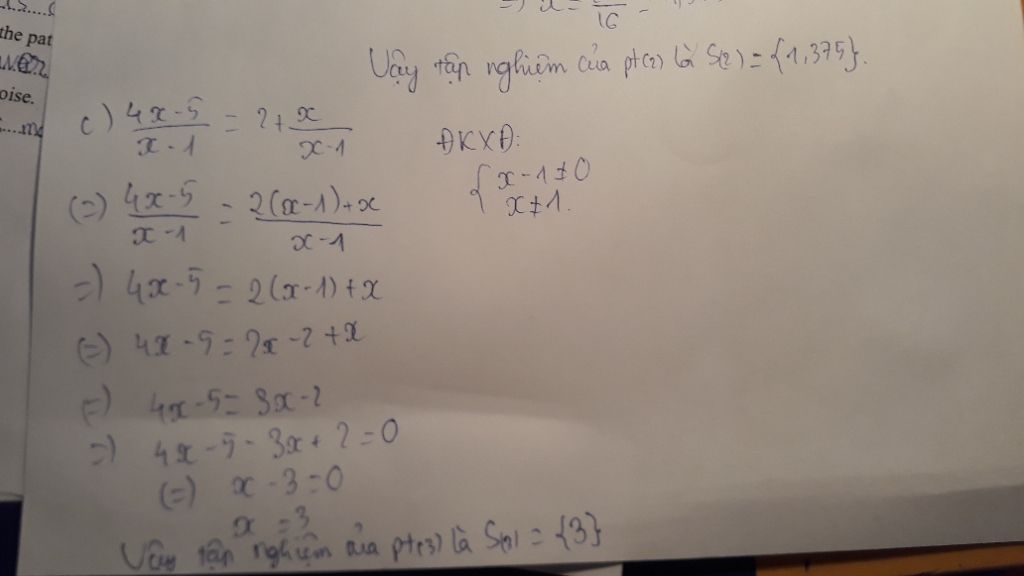 the pat
oise.
Vậy tập nghiệm của pt(2) là S(2) = {1,375}.
c) (4x-5)/(x-1) = 2 + x/(x-1)
ĐKXĐ:
{ x-1≠0
x≠1.
(=) (4x-5)/(x-1) = (2(x-1)+x)/(x-1)
=) 4x-5 = 2(x-1)+x
(=) 4x-5 = 2x-2+x
(=) 4x-5 = 3x-2
=) 4x-5-3x+2=0
(=) x-3=0
x=3
Vậy tập nghiệm của pt(3) là S(3) = {3}